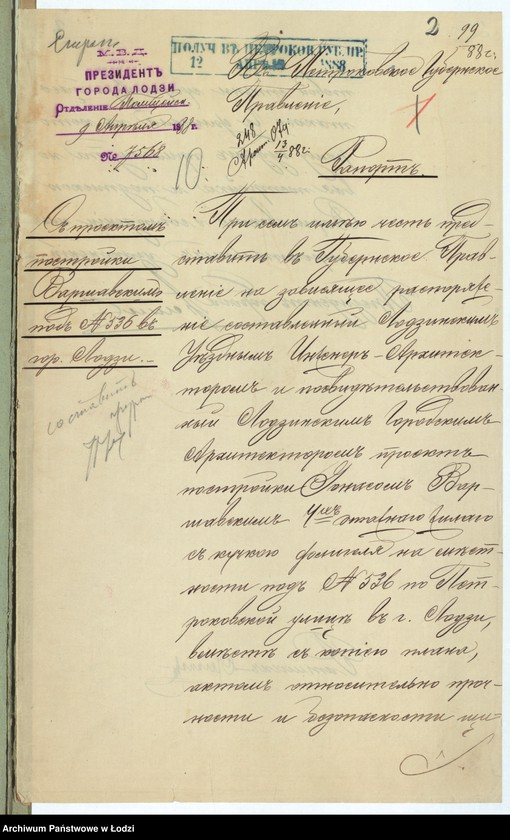 2
99
88 г.
М. В. Д.
ПРЕЗИДЕНТЪ
ГОРОДА ЛОДЗИ
Отдѣленіе Полицейск.
9 Апрѣля 1888 г.
№ 7568
ПОЛУЧ. ВЪ ПЕТРОКОВ. ГУБ. ПР.
12 АПРѢЛ 1888
Въ Петроковское Губернское
Правленіе,
248
13/4 88 г.
10
1
Рапортъ.
Съ проектомъ
постройки
Варшавскимъ
подъ № 536 въ
гор. Лодзи.
составить
При семъ имѣю честь пред-
ставить въ Губернское Прав-
леніе на зависящее распоряже-
ніе составленный Лодзинскимъ
Уѣзднымъ Инженер-Архитек-
торомъ и посвидѣтельствован-
ный Лодзинскимъ Городскимъ
Архитекторомъ проектъ
постройки Іонасомъ Вар-
шавскимъ 4хъ этажнаго жилаго
съ кучкою флигеля на мѣст-
ности подъ № 536 по Пет-
роковской улицѣ въ г. Лодзи,
вмѣстѣ съ копіею плана,
актомъ относительно проч-
ности и безопасности
Archiwum Państwowe w Łodzi